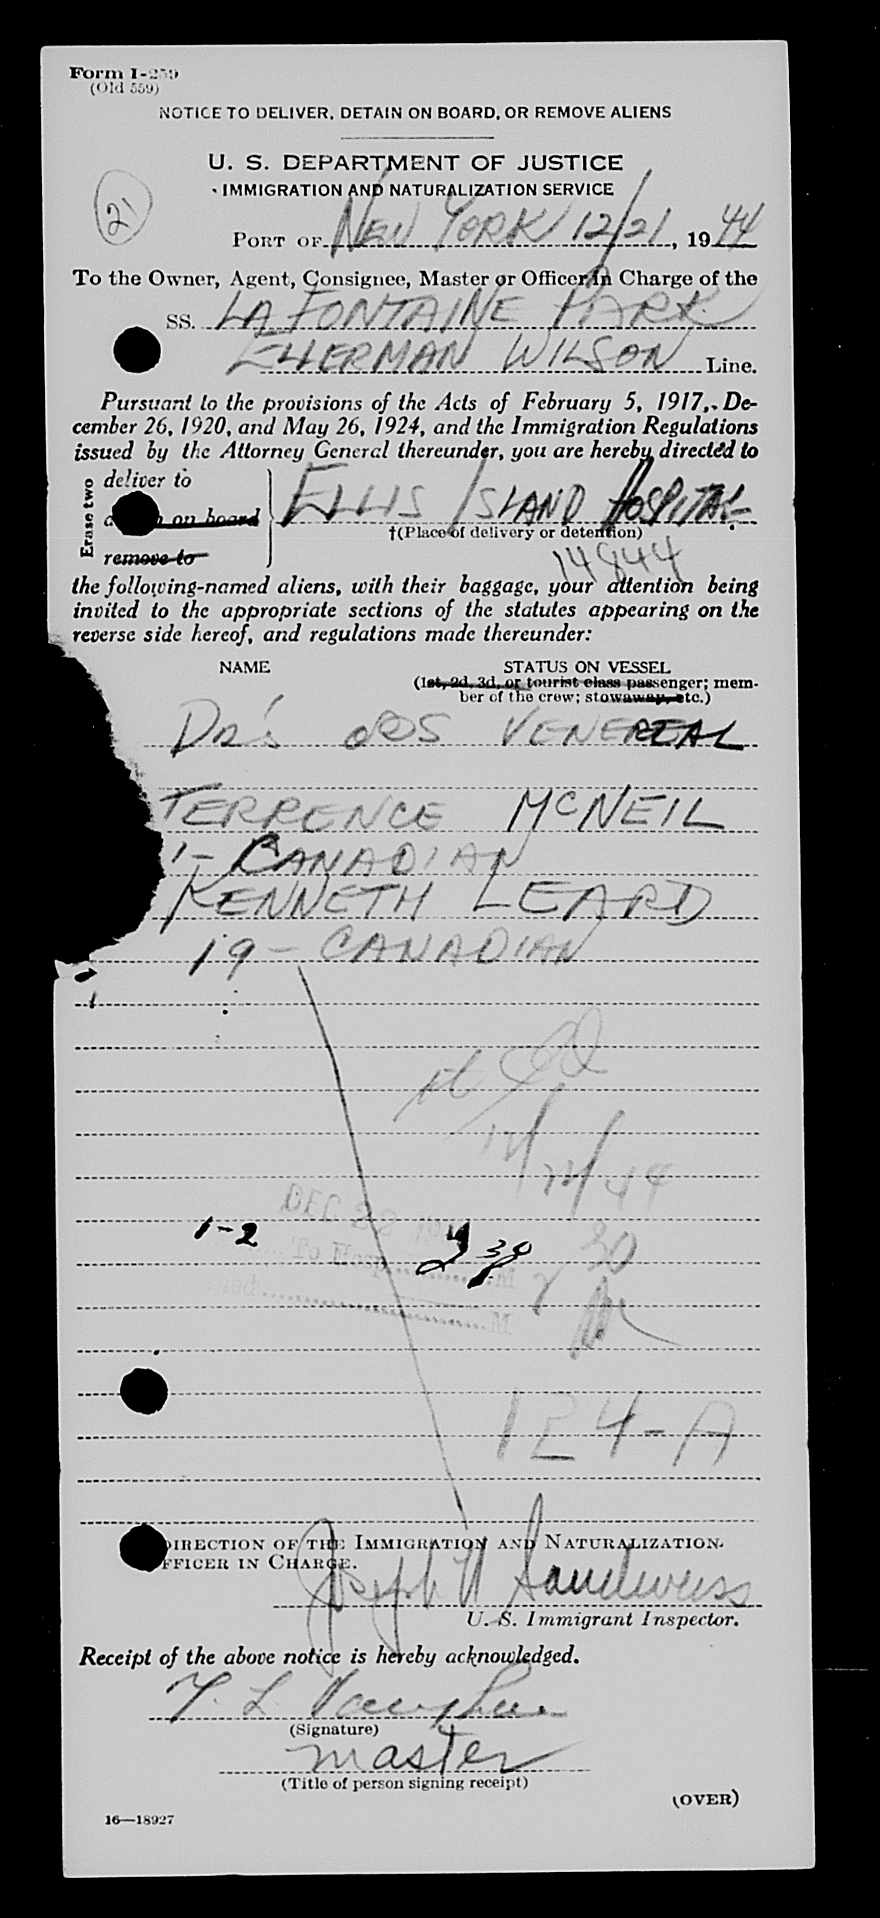 Form I-259
(Old 559)
NOTICE TO DELIVER, DETAIN ON BOARD, OR REMOVE ALIENS
U. S. DEPARTMENT OF JUSTICE
IMMIGRATION AND NATURALIZATION SERVICE
21
PORT OF NEW YORK 12/21, 1944
To the Owner, Agent, Consignee, Master or Officer in Charge of the
SS. LA FONTAINE PARK
ELLERMAN WILSON Line.
Pursuant to the provisions of the Acts of February 5, 1917, De-
cember 26, 1920, and May 26, 1924, and the Immigration Regulations
issued by the Attorney General thereunder, you are hereby directed to
Erase two
deliver to
on board
remove to
ELLIS ISLAND HOSPITAL
†(Place of delivery or detention)
14844
the following-named aliens, with their baggage, your attention being
invited to the appropriate sections of the statutes appearing on the
reverse side hereof, and regulations made thereunder:
NAME STATUS ON VESSEL
(1st, 2d, 3d, or tourist class passenger; mem-
ber of the crew; stowaway, etc.)
DR'S OBS VENEREAL
TERRENCE McNEIL
1- CANADIAN
KENNETH LEARD
19- CANADIAN
12/22/44
DEC 22
1-2
To Hosp M
230
M
124-A
DIRECTION OF THE IMMIGRATION AND NATURALIZATION
OFFICER IN CHARGE.
Joseph Sandweiss
U. S. Immigrant Inspector.
Receipt of the above notice is hereby acknowledged.
T. L. Vaughan
(Signature)
master
(Title of person signing receipt)
(OVER)
16—18927